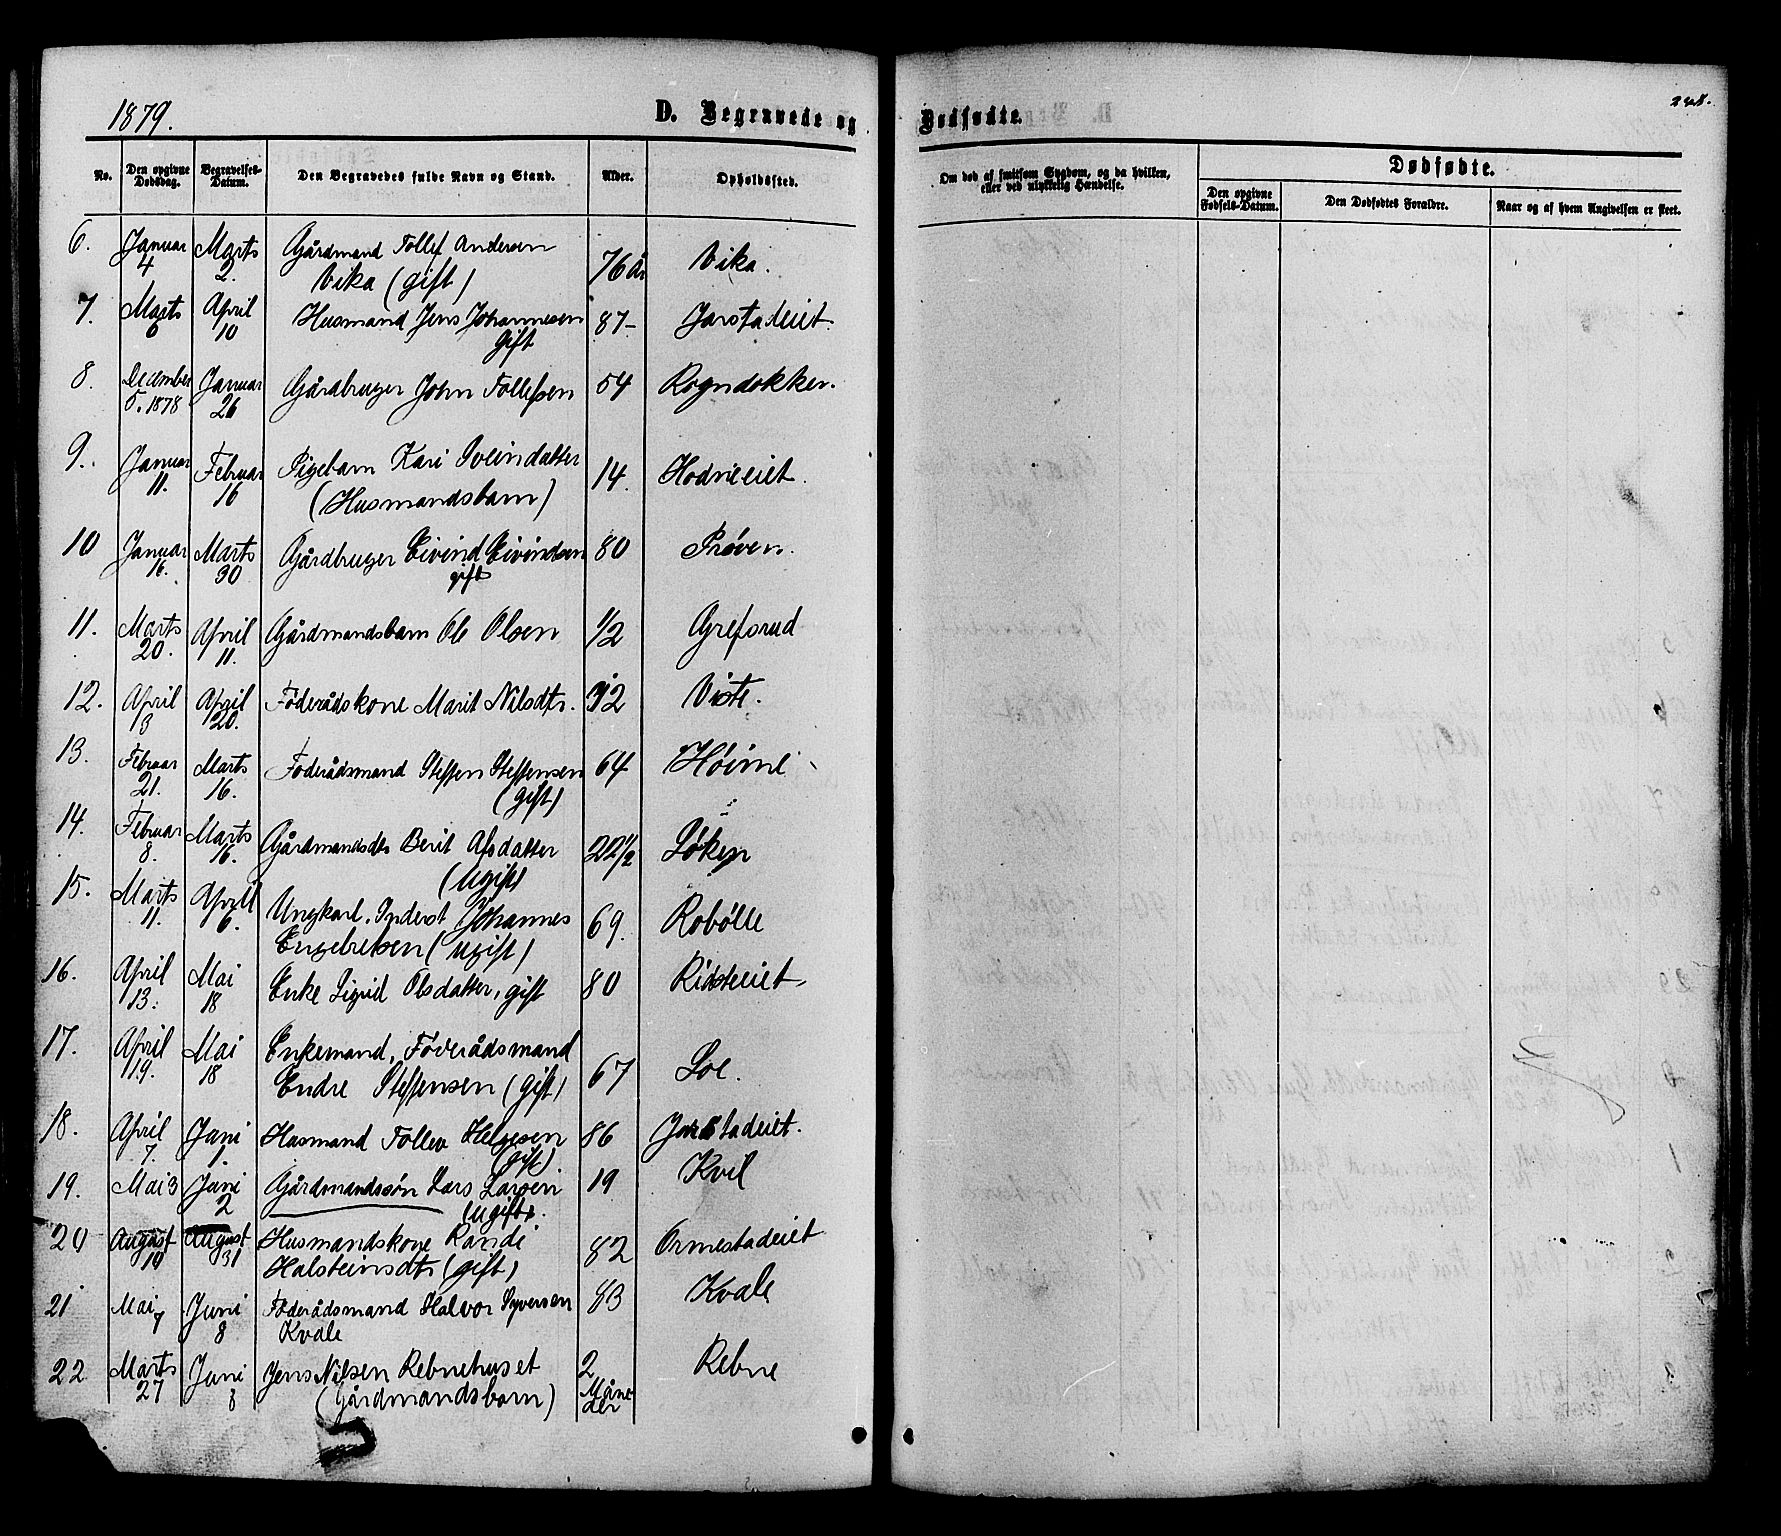 1879.
D. Begravede og
Dødfødte.
248.
No.
Den opgivne Dødsdag.
Begravelses-Datum.
Den Begravedes fulde Navn og Stand.
Alder.
Opholdssted.
Om død af smitsom Sygdom, og da hvilken, eller ved ulykkelig Hændelse.
Dødfødte.
Den opgivne Fødsels-Datum.
Den Dødfødtes Forældre.
Naar og af hvem Angivelsen er skeet.
6. Januar 4 Marts 2. Gårdmand Tollef Andersen 76 År Vika.
Vika (gift)
7. Marts 6 April 10 Husmand Jens Johannesen 87- Jarstadeiet.
gift
8. December 5. 1878 Januar 26 Gårdbruger John Tollefsen 54 Rogndokken.
9. Januar 11. Februar 16 Pigebarn Kari Sveindatter 14. Hodneeiet.
(Husmandsbarn)
10 Januar 16. Marts 30 Gårdbruger Eivind Eivindsen 80 Prøven.
gift
11. Marts 20. April 11. Gårdmandsbarn Ole Olsen 1/2 Grefsrud
12. April 13 April 20. Føderådskone Marit Nilsdtr. Viste.
13. Februar 21. Marts 16. Føderådsmand Steffen Steffensen 64 Høime
(gift)
14. Februar 8. Marts 16. Gårdmandsdtr Berit Alfsdatter 22 1/2 Løken
(Ugift)
15. Marts 11. April 6. Ungkarl. Inderst Johannes 69. Robølle
Engebretsen (Ugift)
16. April 13. Mai 18 Enke Sigrid Olsdatter, gift 80 Ridsteeiet
17. April 19. Mai 18 Enkemand, Føderådsmand
Endre Steffensen (gift) 67 Loe.
18. April 7. Juni 1. Husmand Tollev Helgesen 86 Jarstadeiet.
(gift)
19. Mai 3 Juni 2 Gårdmandssøn Lars Larsen 19 Kvil
(ugift).
20 August 10 August 31 Husmandskone Randi 82 Ormestadeiet
Halsteinsdtr (gift)
21 Mai 7 Juni 8 Føderådsmand Halvor Syversen 83 Kvale
Kvale
22 Marts 27 Juni 8 Jens Nilsen Rebnehuset 2 Måneder Rebne
(Gårdmandsbarn)